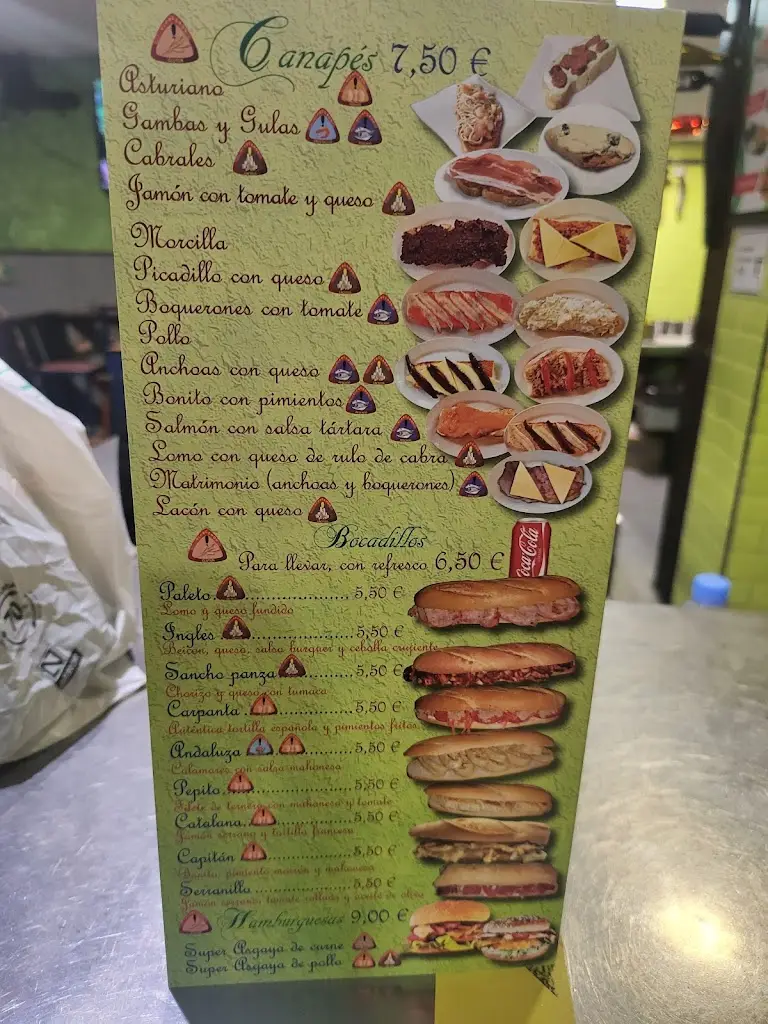 Canapés 7,50 €
Asturiano
Gambas y Gulas
Cabrales
Jamón con tomate y queso
Morcilla
Picadillo con queso
Boquerones con tomate
Pollo
Anchoas con queso
Bonito con pimientos
Salmón con salsa tártara
Lomo con queso de rulo de cabra
Matrimonio (anchoas y boquerones)
Lacón con queso
Bocadillos
Para llevar, con refresco 6,50 €
Coca-Cola
Paleto 5,50 €
Lomo y queso fundido
Ingles 5,50 €
Beicon, queso, salsa burguer y cebolla crujiente
Sancho panza 5,50 €
Chorizo y queso con tumaca
Carpanta 5,50 €
Auténtica tortilla española y pimientos fritos
Andaluza 5,50 €
Calamares con salsa mahonesa
Pepito 5,50 €
Filete de ternera con mahonesa y tomate
Catalana 5,50 €
Jamón serrano y tortilla francesa
Capitán 5,50 €
Bonito, pimiento morrón y mahonesa
Serranillo 5,50 €
Jamón serrano, tomate rallado y aceite de oliva
Hamburguesas 9,00 €
Super Asgaya de carne
Super Asgaya de pollo